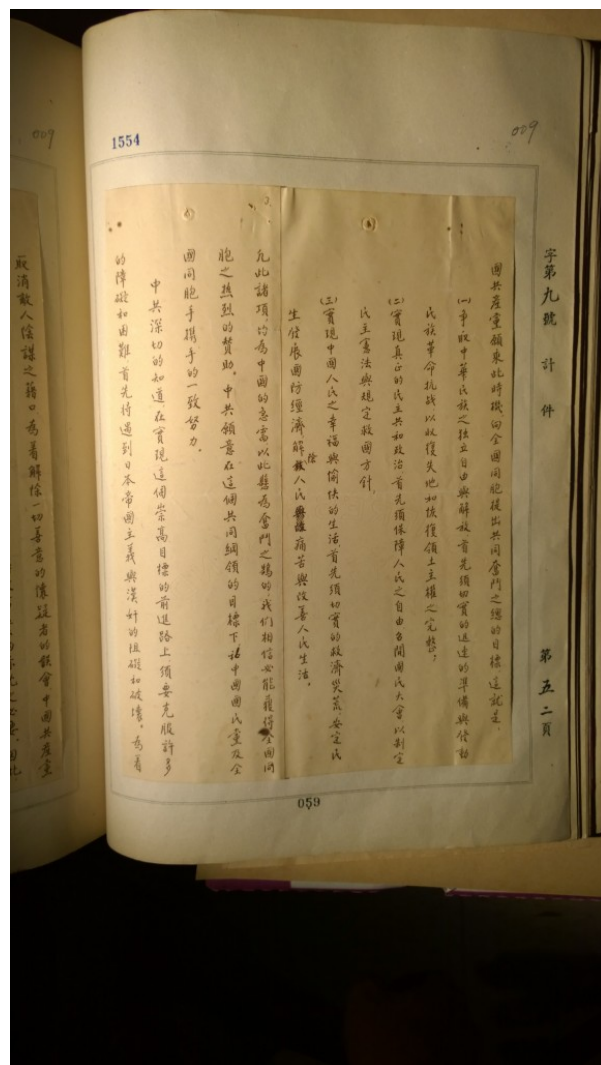 009
1554
009
字第九號計件
第五二頁
國共產黨願乘此時機向全國同胞提出共同奮鬥之總的目標這就是.
(一)爭取中華民族之獨立自由與解放首先須切實的迅速的準備與發動
民族革命抗戰以收復失地和恢復領土主權之完整.
(二)實現真正的民主共和政治首先須保障人民之自由召開國民大會以制定
民主憲法與規定救國方針.
(三)實現中國人民之幸福與愉快的生活首先須切實的救濟災荒、安定民
生發展國防經濟解除人民痛苦與改善人民生活.
凡此諸項,均為中國的急需以此懸為奮鬥之鵠的,我們相信必能獲得全國同
胞之熱烈的贊助.中共願意在這個共同綱領的目標下,誌中國國民黨及全
國同胞手攜手的一致努力.
中共深切的知道在實現這個崇高目標的前進路上須要克服許多
的障礙和困難首先將遇到日本帝國主義與漢奸的阻礙和破壞.為着
取消敵人陰謀之藉口為着解除一切善意的懷疑者的誤會中國共產黨
059